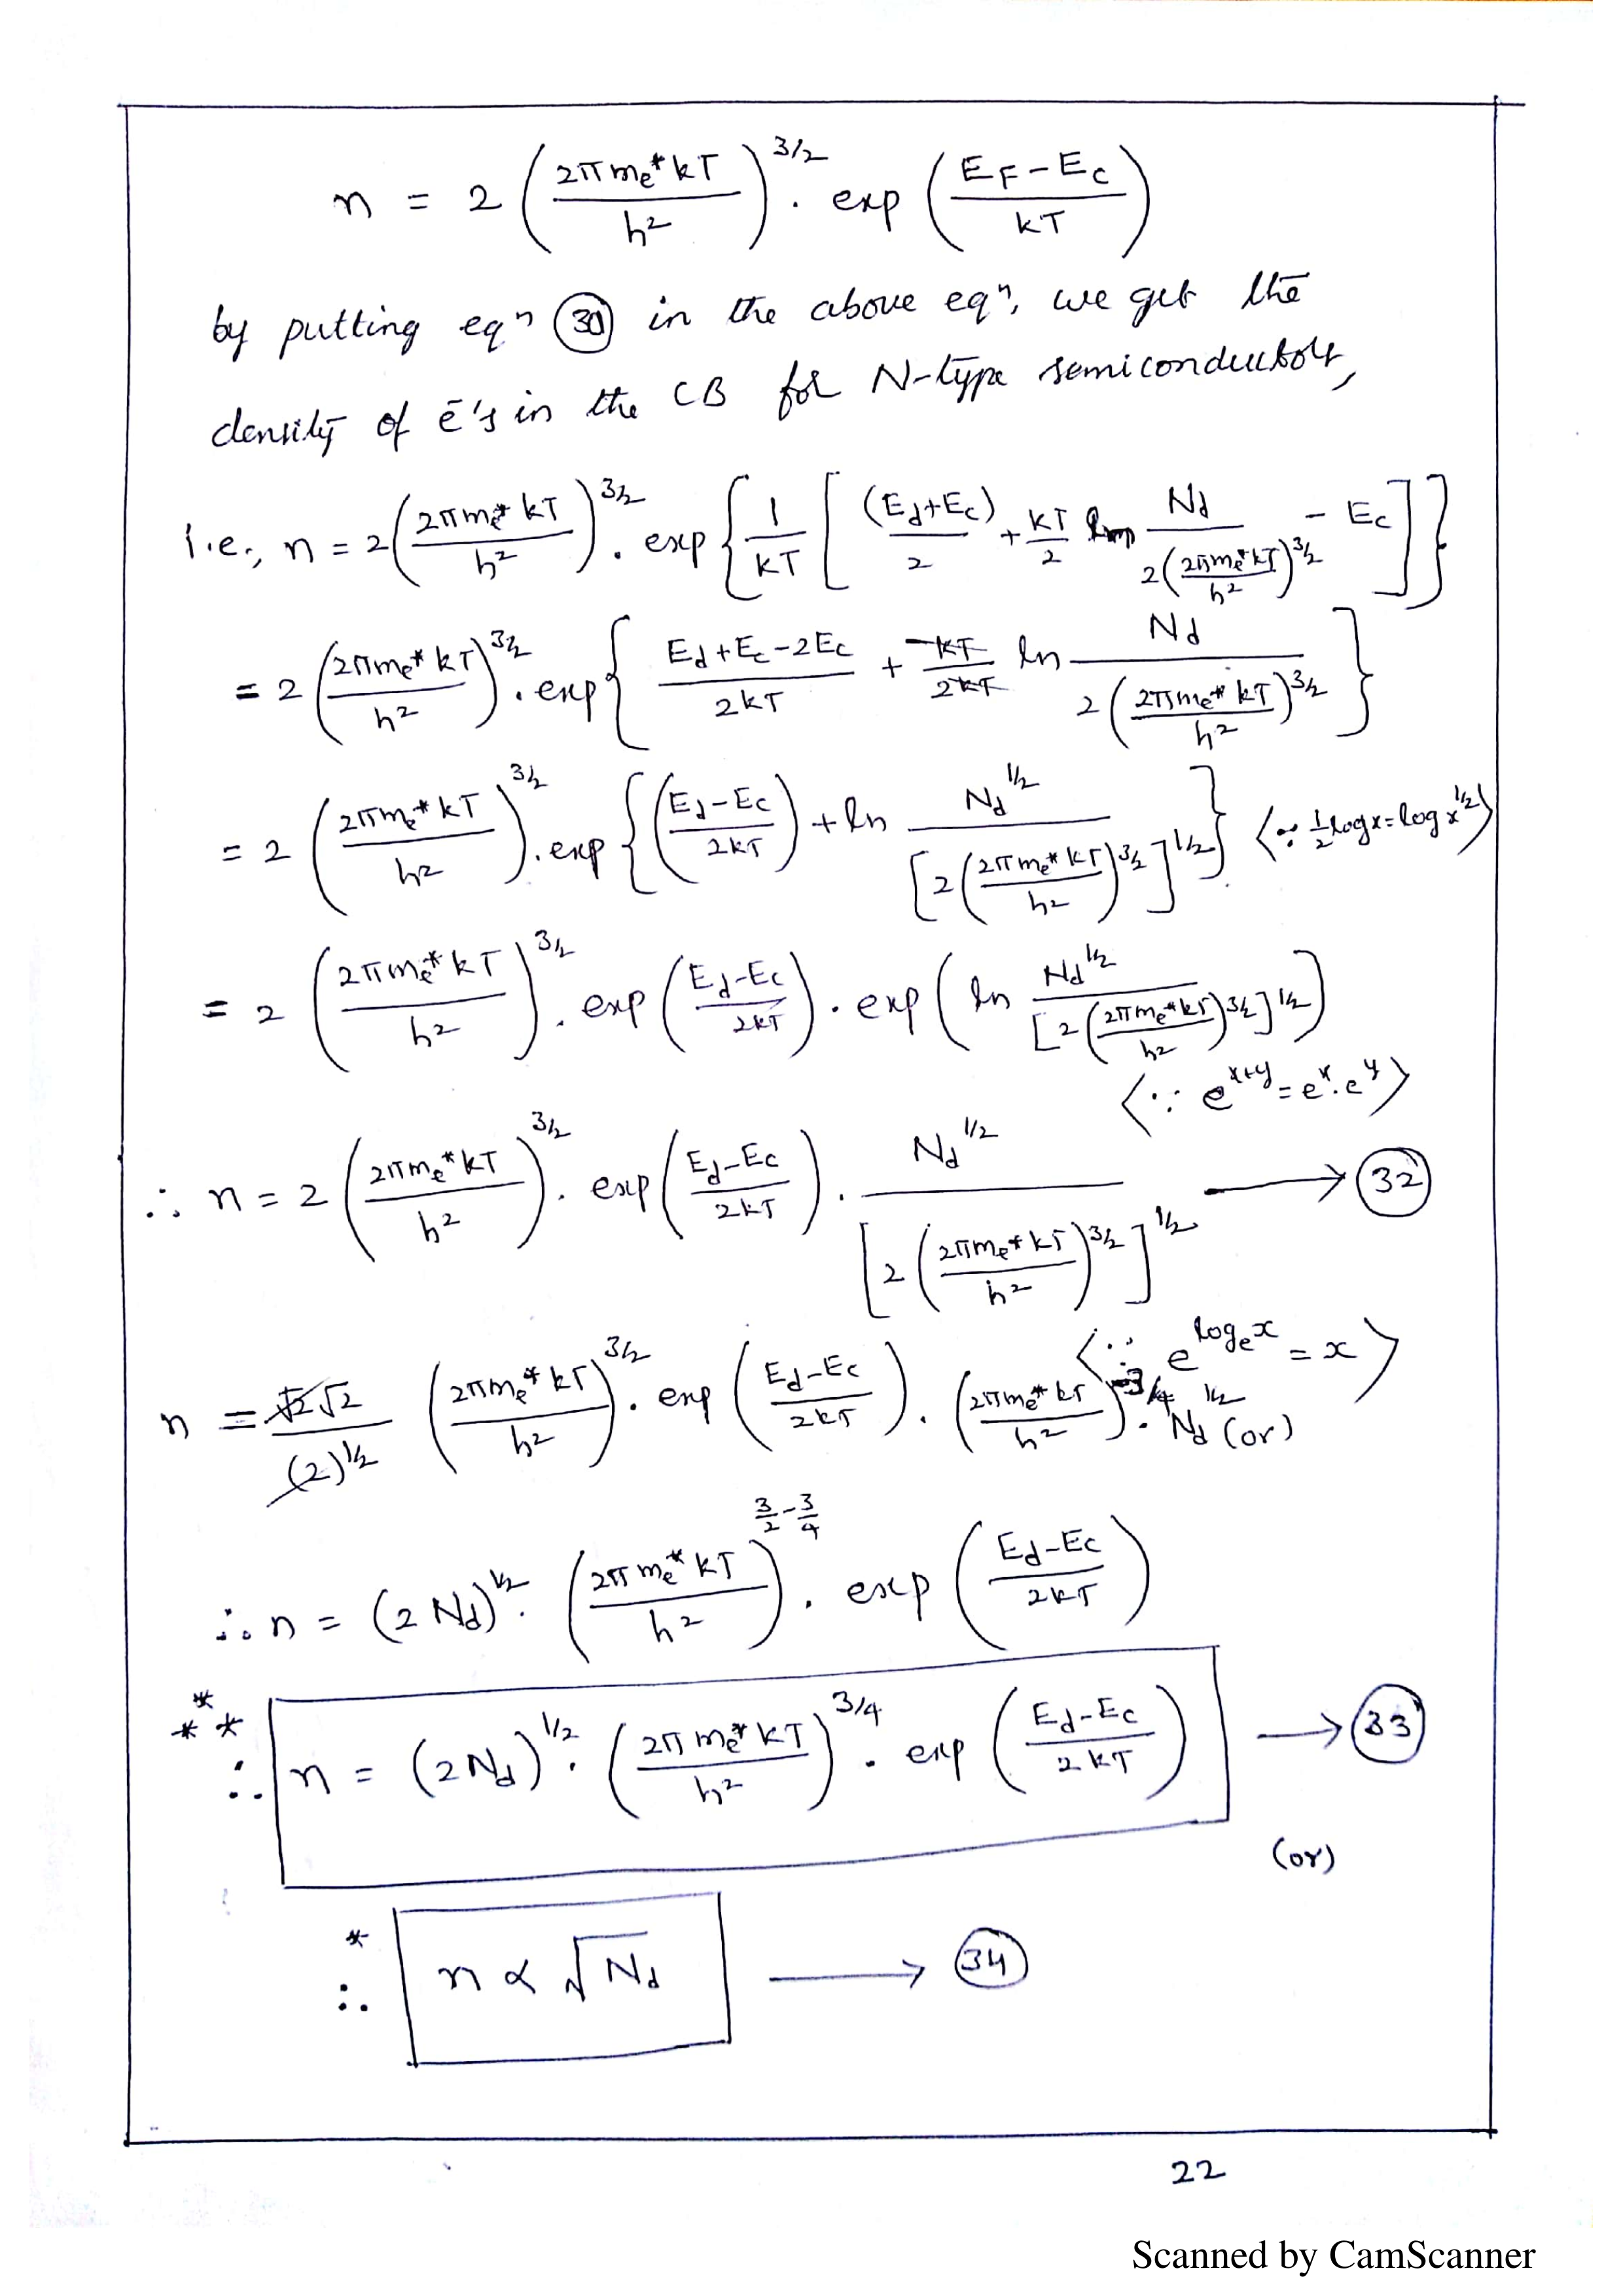 n = 2 (2πme* kT / h²)^3/2 . exp (EF − Ec / kT)
by putting eqn (30) in the above eqn, we get the
density of ē's in the CB for N-type semiconductors,
i.e., n = 2 (2πme* kT / h²)^3/2 . exp { 1/kT [ (Ed+Ec)/2 + kT/2 ln Nd / 2(2πme* kT / h²)^3/2 − Ec ] }
= 2 (2πme* kT / h²)^3/2 . exp { Ed+Ec−2Ec / 2kT + kT/2kT ln Nd / 2(2πme* kT / h²)^3/2 }
= 2 (2πme* kT / h²)^3/2 . exp { (Ed−Ec / 2kT) + ln Nd^1/2 / [2(2πme* kT / h²)^3/2]^1/2 } ⟨∵ 1/2 log x = log x^1/2⟩
= 2 (2πme* kT / h²)^3/2 . exp (Ed−Ec / 2kT) . exp ( ln Nd^1/2 / [2(2πme* kT / h²)^3/2]^1/2 )
⟨∵ e^x+y = e^x . e^y⟩
∴ n = 2 (2πme* kT / h²)^3/2 . exp (Ed−Ec / 2kT) . Nd^1/2 / [2(2πme* kT / h²)^3/2]^1/2 → (32)
⟨∵ e^loge x = x⟩
n = √2 √2 / (2)^1/2 (2πme* kT / h²)^3/2 . exp (Ed−Ec / 2kT) . (2πme* kT / h²)^−3/4 . Nd^1/2 (or)
∴ n = (2 Nd)^1/2 . (2πme* kT / h²)^3/2 − 3/4 . exp (Ed−Ec / 2kT)
*** ∴ n = (2Nd)^1/2 . (2πme* kT / h²)^3/4 . exp (Ed−Ec / 2kT) → (33)
(or)
* ∴ n ∝ √Nd → (34)
22
Scanned by CamScanner